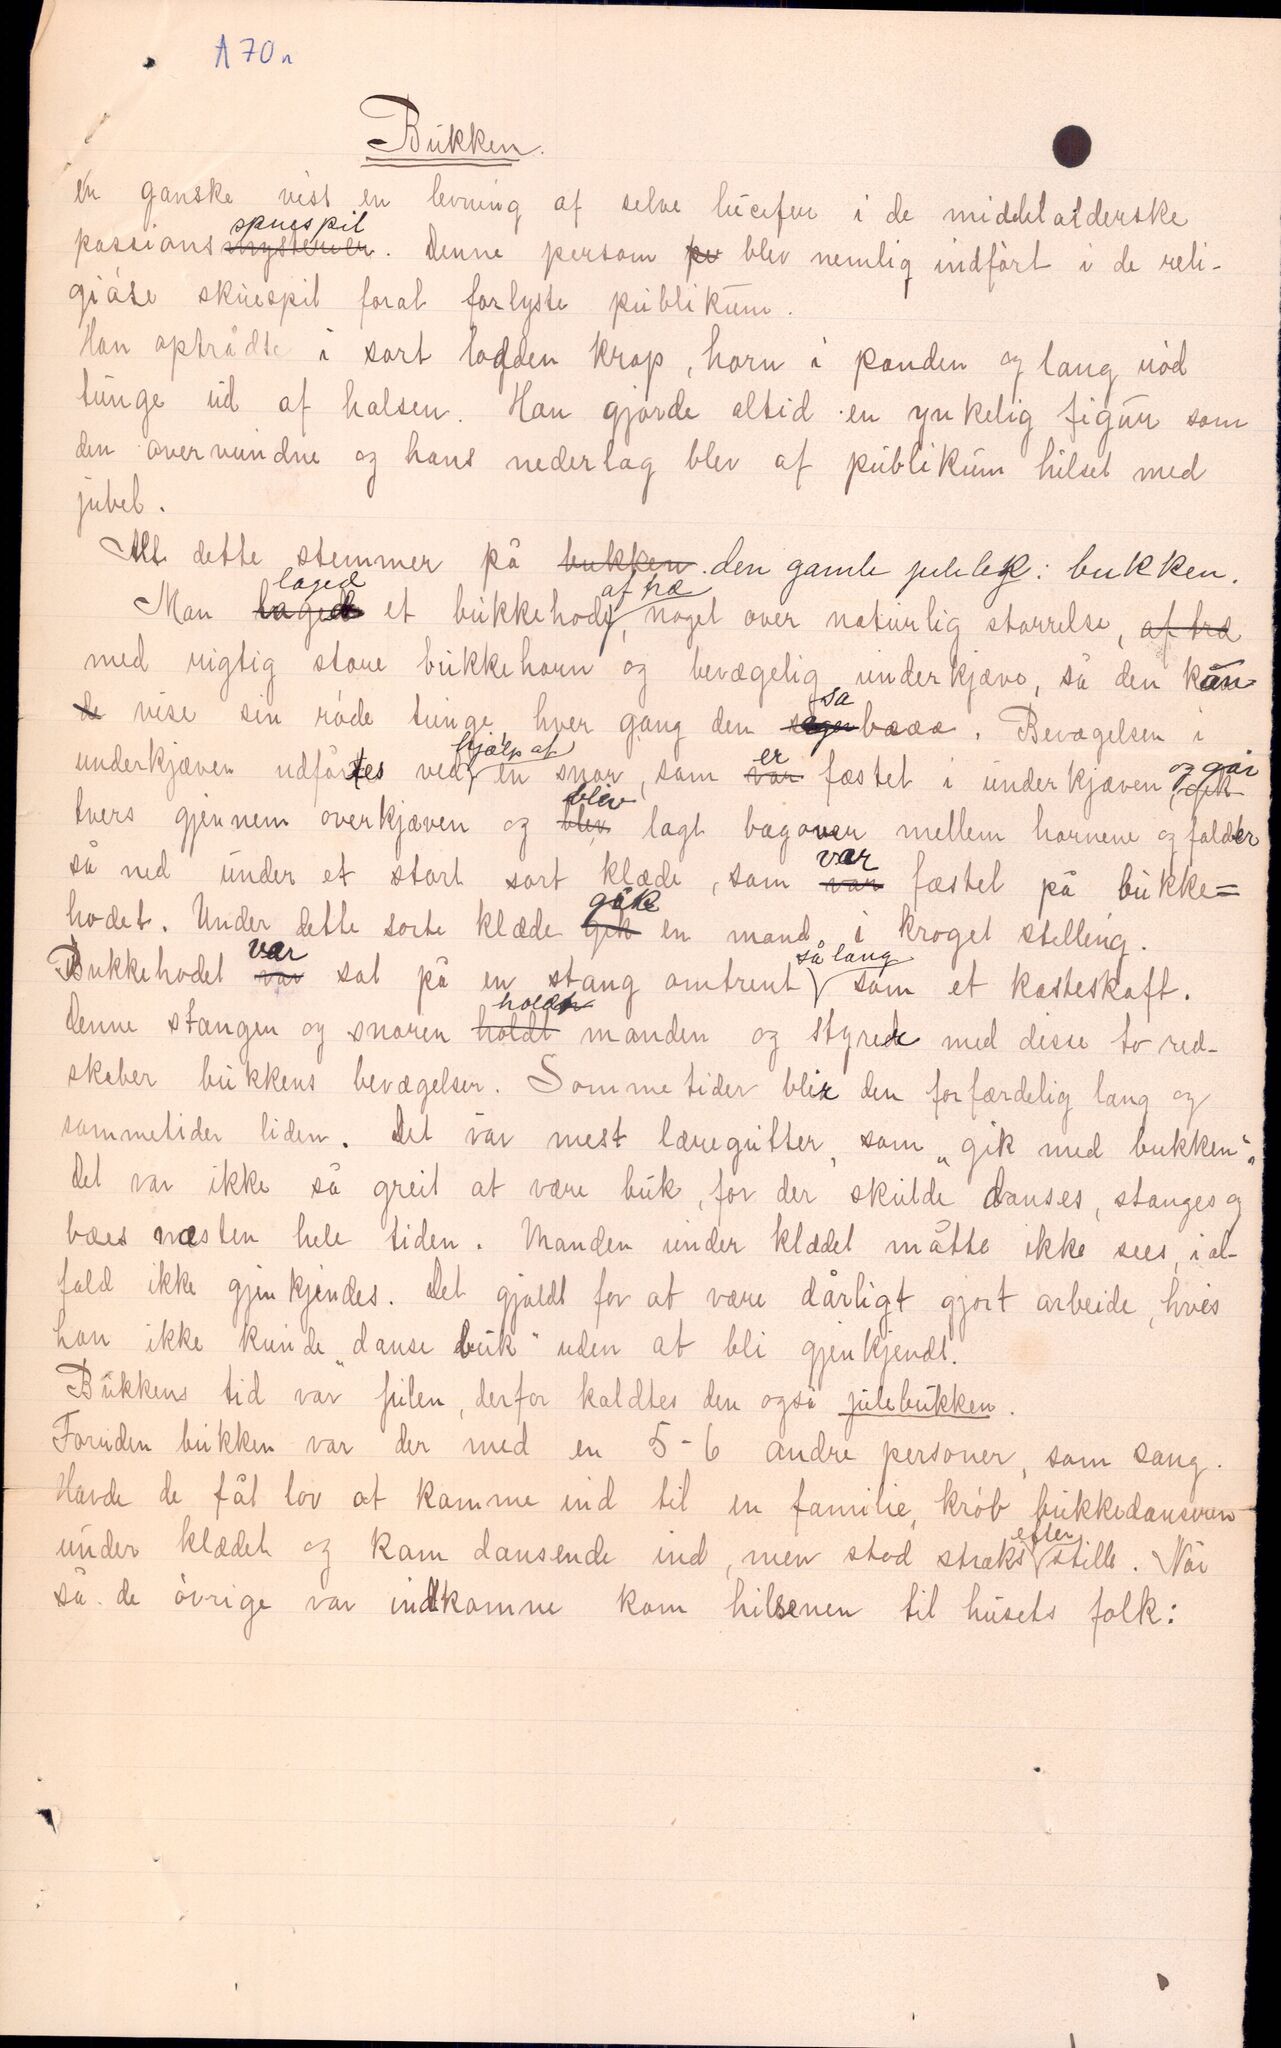 A 70 a
Bukken.
er ganske vist en levning af selve lucifer i de middelalderske
passions skuespil mysterier. Denne person pe blev nemlig indført i de reli-
giøse skuespil forat forlyste publikum.
Han optrådte i sort lodden krop, horn i panden og lang rød
tunge ud af halsen. Han gjorde altid en ynkelig figur som
den overvundne og hans nederlag blev af publikum hilset med
jubel.
Alt dette stemmer på bukken den gamle juleleg: bukken.
Man laged laged et bukkehode af træ, noget over naturlig størrelse, af træ
med rigtig store bukkehorn og bevægelig underkjæve, så den kun-
de vise sin røde tunge hver gang den sa sager bæææ. Bevægelsen i
underkjæven udførtes ved hjælp af en snor, som er var fæstet i underkjæven, og går gik
tvers gjennem overkjæven og blev blev lagt bagover mellem hornene og falder
så ned under et stort sort klæde, som var var fæstet på bukke=
hodet. Under dette sorte klæde gik gik en mand i kroget stelling.
Bukkehodet var var sat på en stang omtrent så lang som et kosteskaft.
Denne stangen og snoren holdt holdt manden og styrede med disse to red-
skaber bukkens bevægelser. Sommetider blir den forfærdelig lang og
sommetider liden. Det var mest læregutter, som "gik med bukken".
Det var ikke så greit at være buk, for der skulde danses, stanges og
bæes næsten hele tiden. Manden under klædet måtte ikke sees, ial-
fald ikke gjenkjendes. Det gjaldt for at være dårligt gjort arbeide, hvis
han ikke kunde "danse buk" uden at bli gjenkjendt.
Bukkens tid var julen, derfor kaldtes den også julebukken.
Foruden bukken var der med en 5-6 andre personer, som sang.
Havde de fåt lov at komme ind til en familie, krøb bukkedanseren
under klædet og kom dansende ind, men stod straks efter stille. Når
så de øvrige var indkomne kom hilsenen til husets folk: